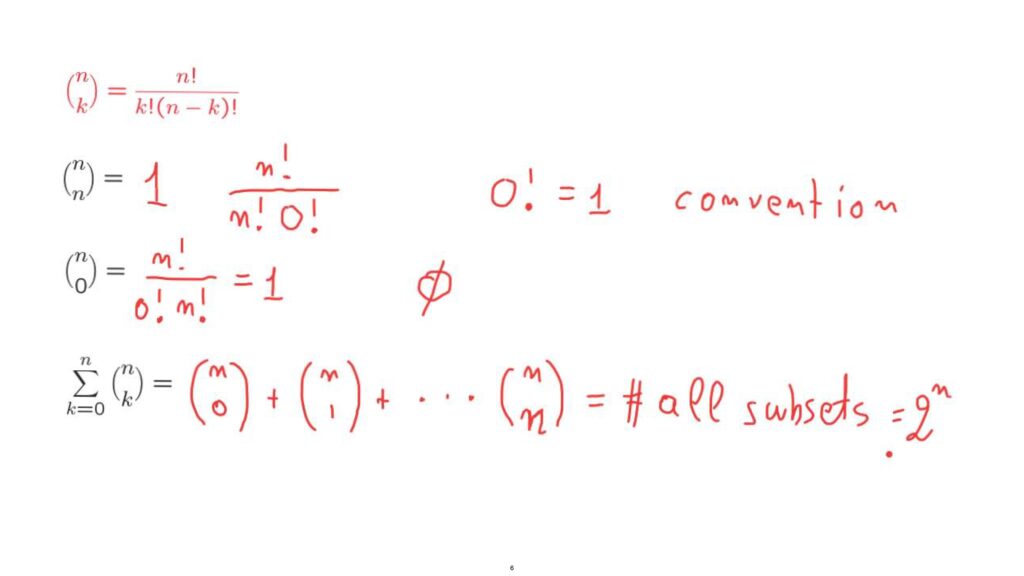 $\binom{n}{k} = \frac{n!}{k!(n-k)!}$
$\binom{n}{n} = 1 \quad \frac{n!}{n!\,0!} \quad 0! = 1$ convention
$\binom{n}{0} = \frac{n!}{0!\,n!} = 1 \quad \emptyset$
$\sum_{k=0}^{n} \binom{n}{k} = \binom{n}{0} + \binom{n}{1} + \cdots \binom{n}{n} =$ # all subsets $= 2^n$.
6